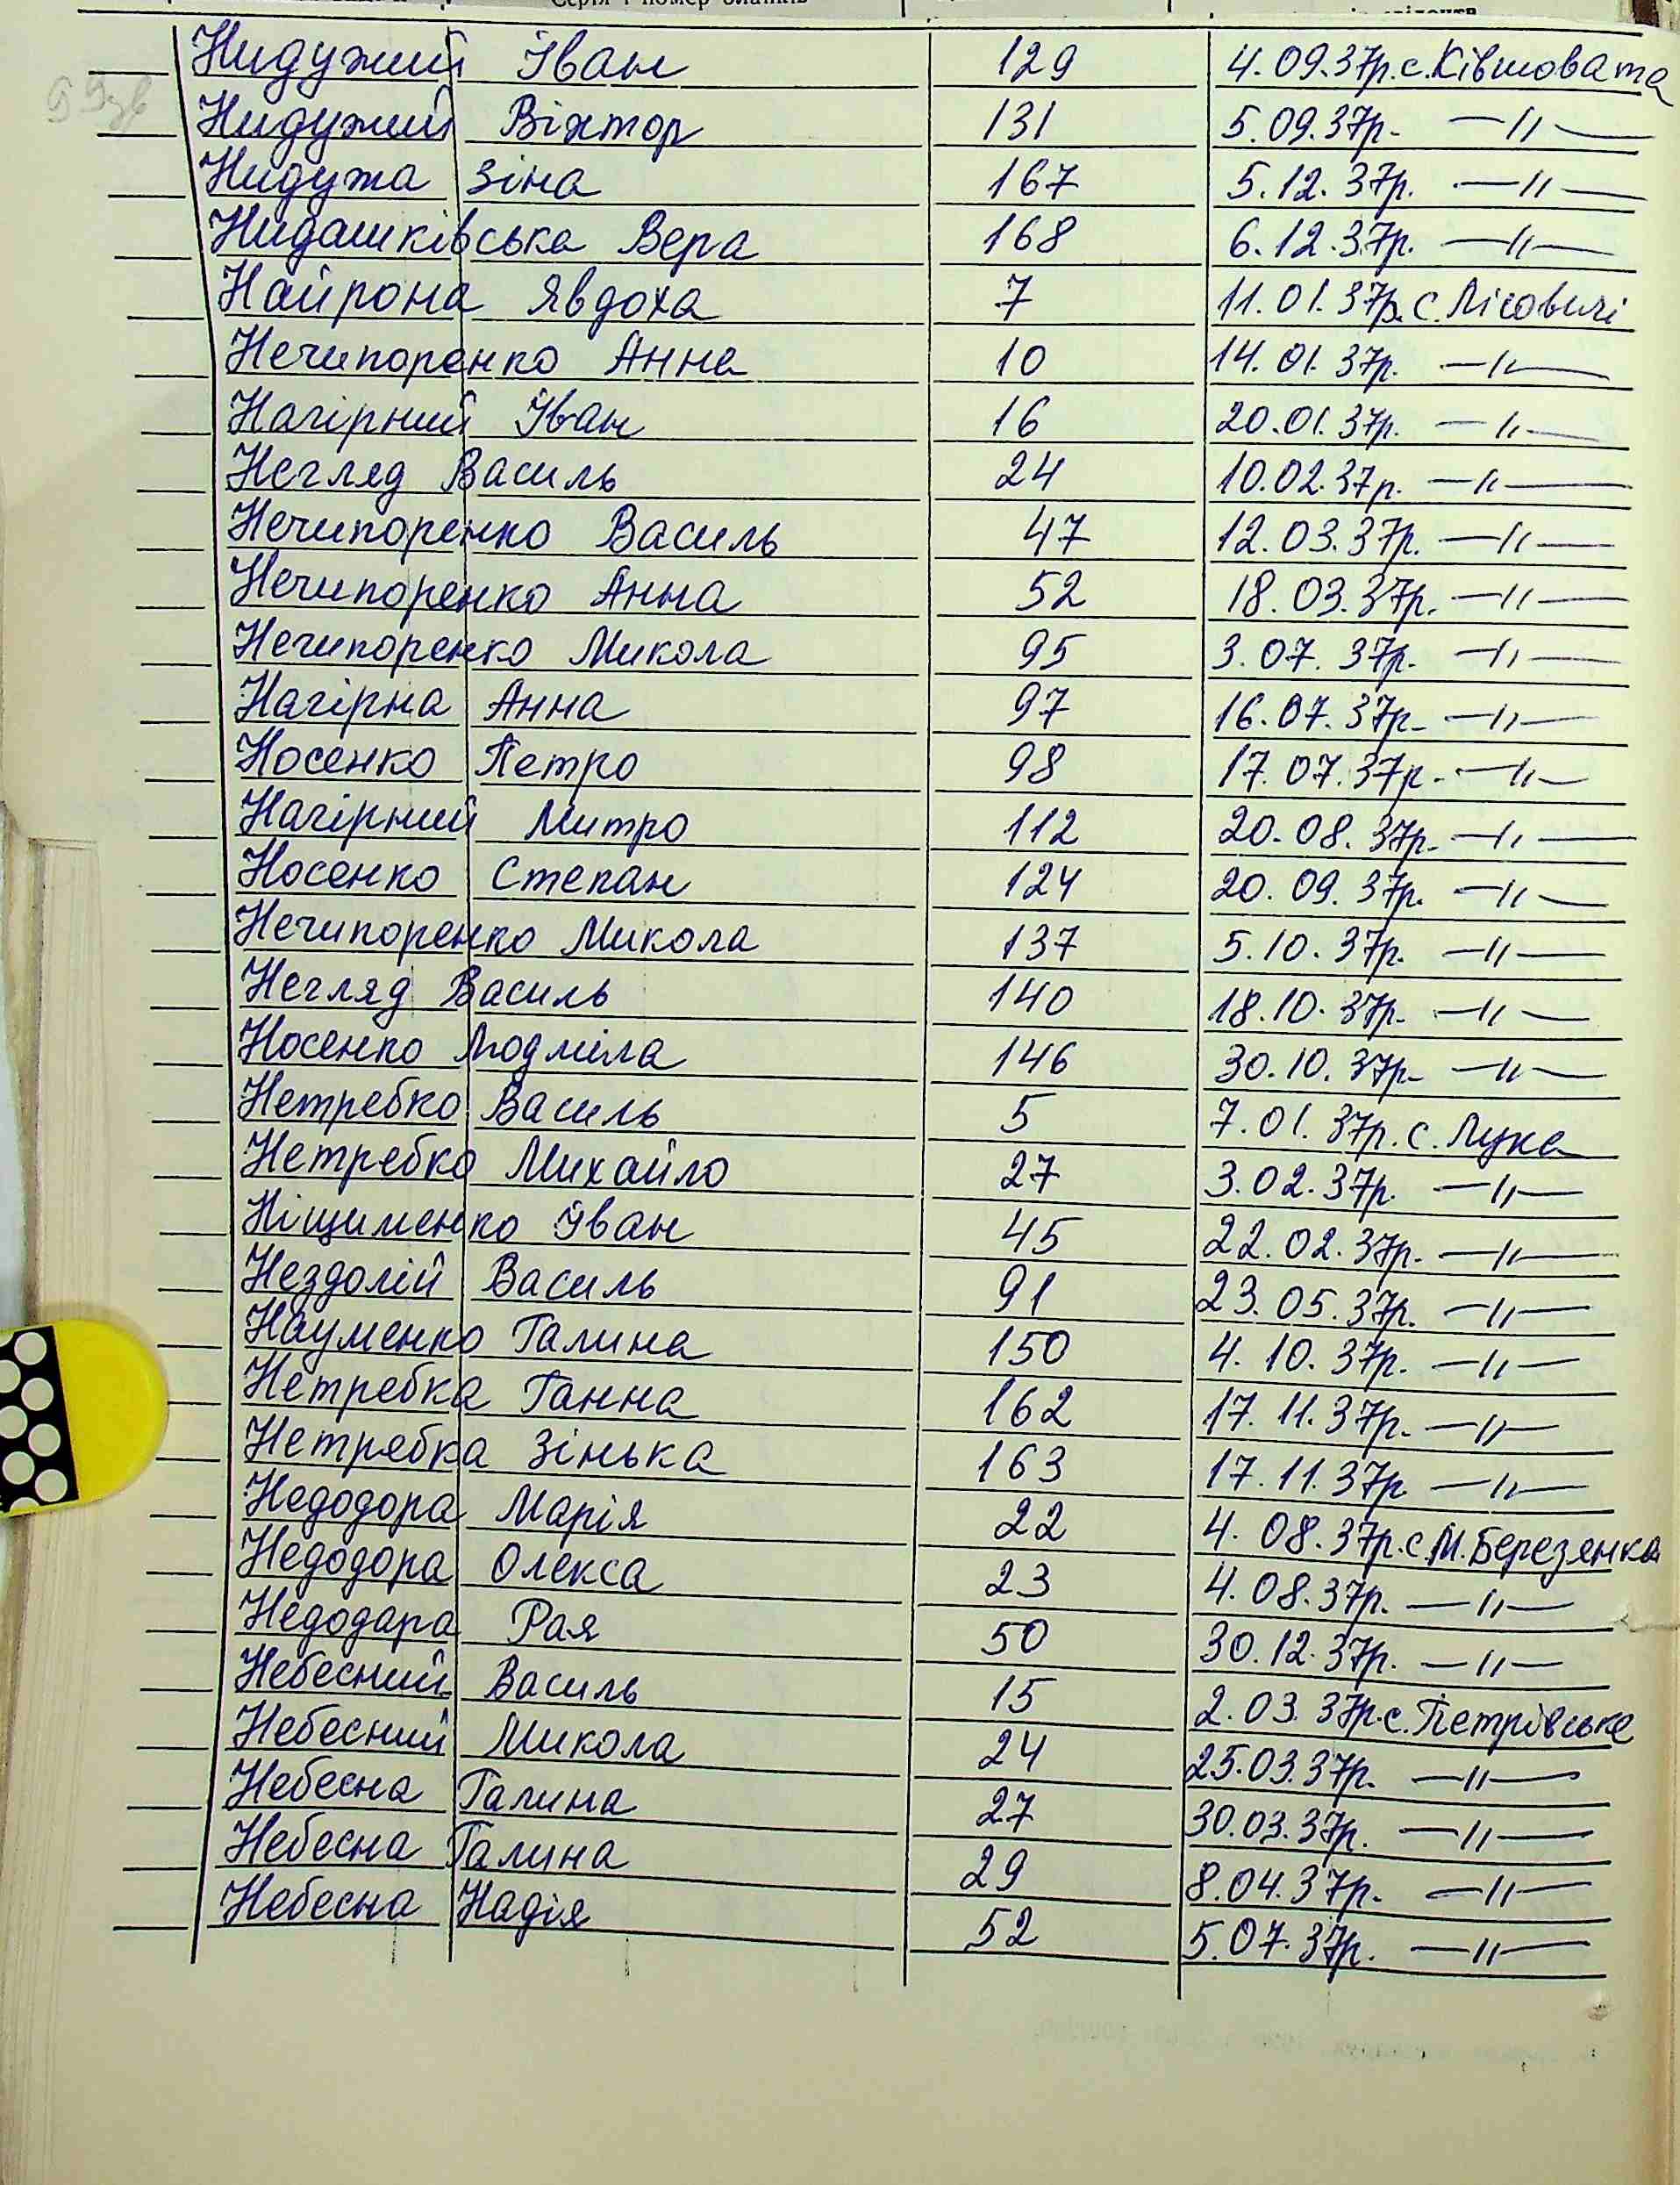 Серія і номер бланків
Нидужий Іван 129 4.09.37р. с. Ківшовата
Нидужий Віктор 131 5.09.37р. —〃—
Нидужа Зіна 167 5.12.37р. —〃—
Нидашківська Вера 168 6.12.37р. —〃—
Найрона Явдоха 7 11.01.37р. с. Лісовичі
Нечипоренко Анна 10 14.01.37р. —〃—
Нагірний Іван 16 20.01.37р. —〃—
Негляд Василь 24 10.02.37р. —〃—
Нечипоренко Василь 47 12.03.37р. —〃—
Нечипоренко Анна 52 18.03.37р. —〃—
Нечипоренко Микола 95 3.07.37р. —〃—
Нагірна Анна 97 16.07.37р. —〃—
Носенко Петро 98 17.07.37р. —〃—
Нагірний Митро 112 20.08.37р. —〃—
Носенко Степан 124 20.09.37р. —〃—
Нечипоренко Микола 137 5.10.37р. —〃—
Негляд Василь 140 18.10.37р. —〃—
Носенко Людміла 146 30.10.37р. —〃—
Нетребко Василь 5 7.01.37р. с. Лука
Нетребко Михайло 27 3.02.37р. —〃—
Ніщименко Іван 45 22.02.37р. —〃—
Нездолій Василь 91 23.05.37р. —〃—
Науменко Галина 150 4.10.37р. —〃—
Нетребка Ганна 162 17.11.37р. —〃—
Нетрябка Зінька 163 17.11.37р —〃—
Недодора Марія 22 4.08.37р. с. М. Березянка
Недодора Олекса 23 4.08.37р. —〃—
Недодара Рая 50 30.12.37р. —〃—
Небесний Василь 15 2.03.37р. с. Петрівське
Небесний Микола 24 25.03.37р. —〃—
Небесна Галина 27 30.03.37р. —〃—
Небесна Галина 29 8.04.37р. —〃—
Небесна Надія 52 5.07.37р. —〃—